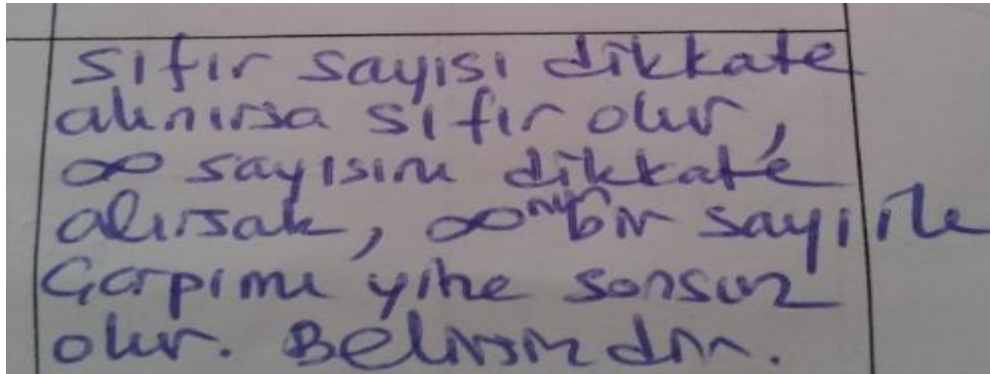 sıfır sayısı dikkate
alınırsa sıfır olur,
∞ sayısını dikkate
alırsak, ∞nun bir sayı ile
Çarpımı yine sonsuz
olur. Belirsizdir.